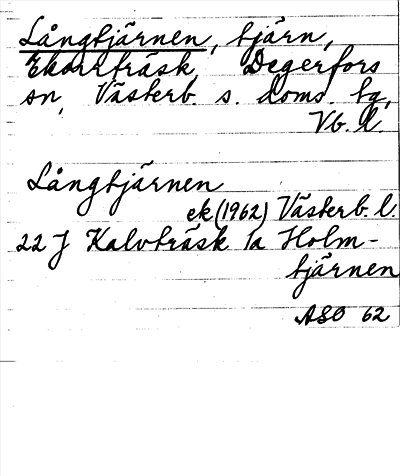 Långtjärnen, tjärn,
Ekorrträsk, Degerfors
sn, Västerb. s. doms. tg,
Vb. l.
Långtjärnen
ek (1962) Västerb. l.
22 J Kalvträsk 1a Holm-
tjärnen
ASO 62